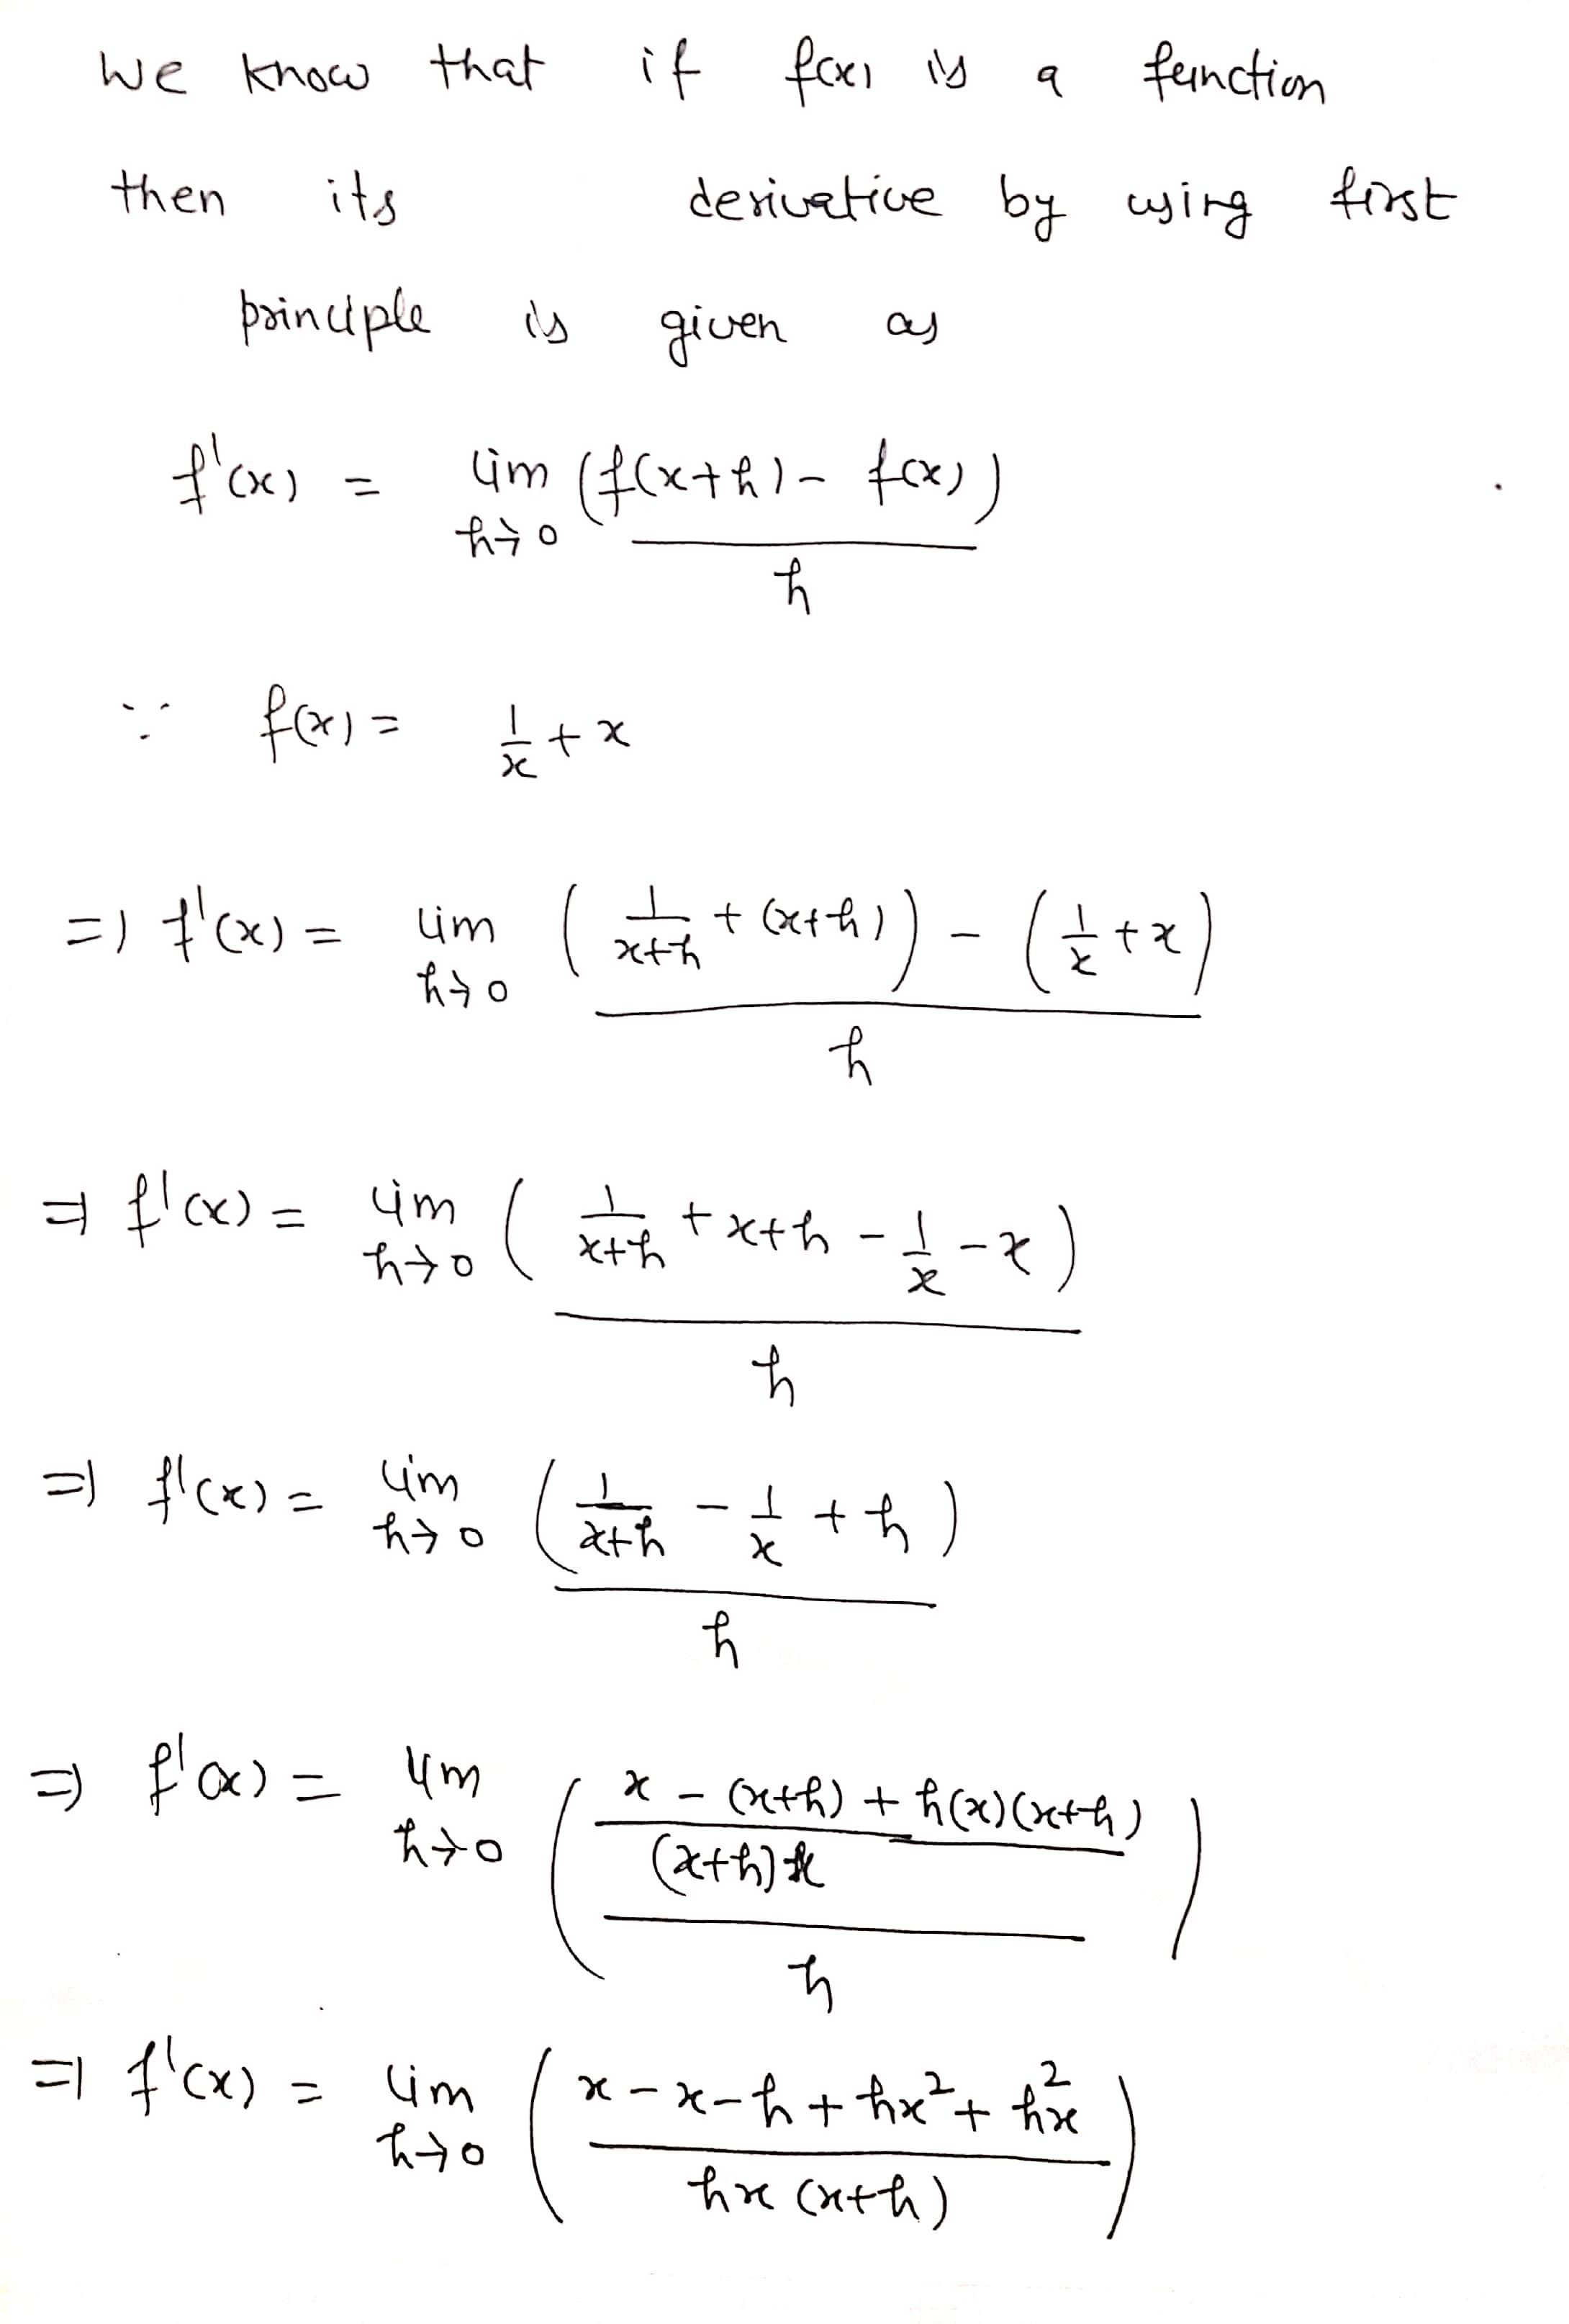 We know that if f(x) is a function
then its derivative by using first
principle is given as
f'(x) = lim h→0 (f(x+h) - f(x)) / h
∵ f(x) = 1/x + x
⇒ f'(x) = lim h→0 ((1/(x+h) + (x+h)) - (1/x + x)) / h
⇒ f'(x) = lim h→0 (1/(x+h) + x+h - 1/x - x) / h
⇒ f'(x) = lim h→0 (1/(x+h) - 1/x + h) / h
⇒ f'(x) = lim h→0 ((x - (x+h) + h(x)(x+h)) / ((x+h)x) / h)
⇒ f'(x) = lim h→0 ((x - x - h + hx² + h²x) / (hx(x+h)))